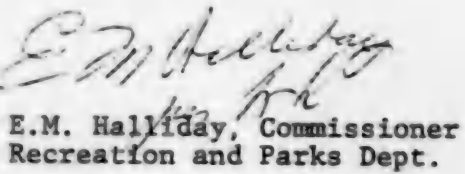 E M Halliday
E.M. Halliday, Commissioner
Recreation and Parks Dept.